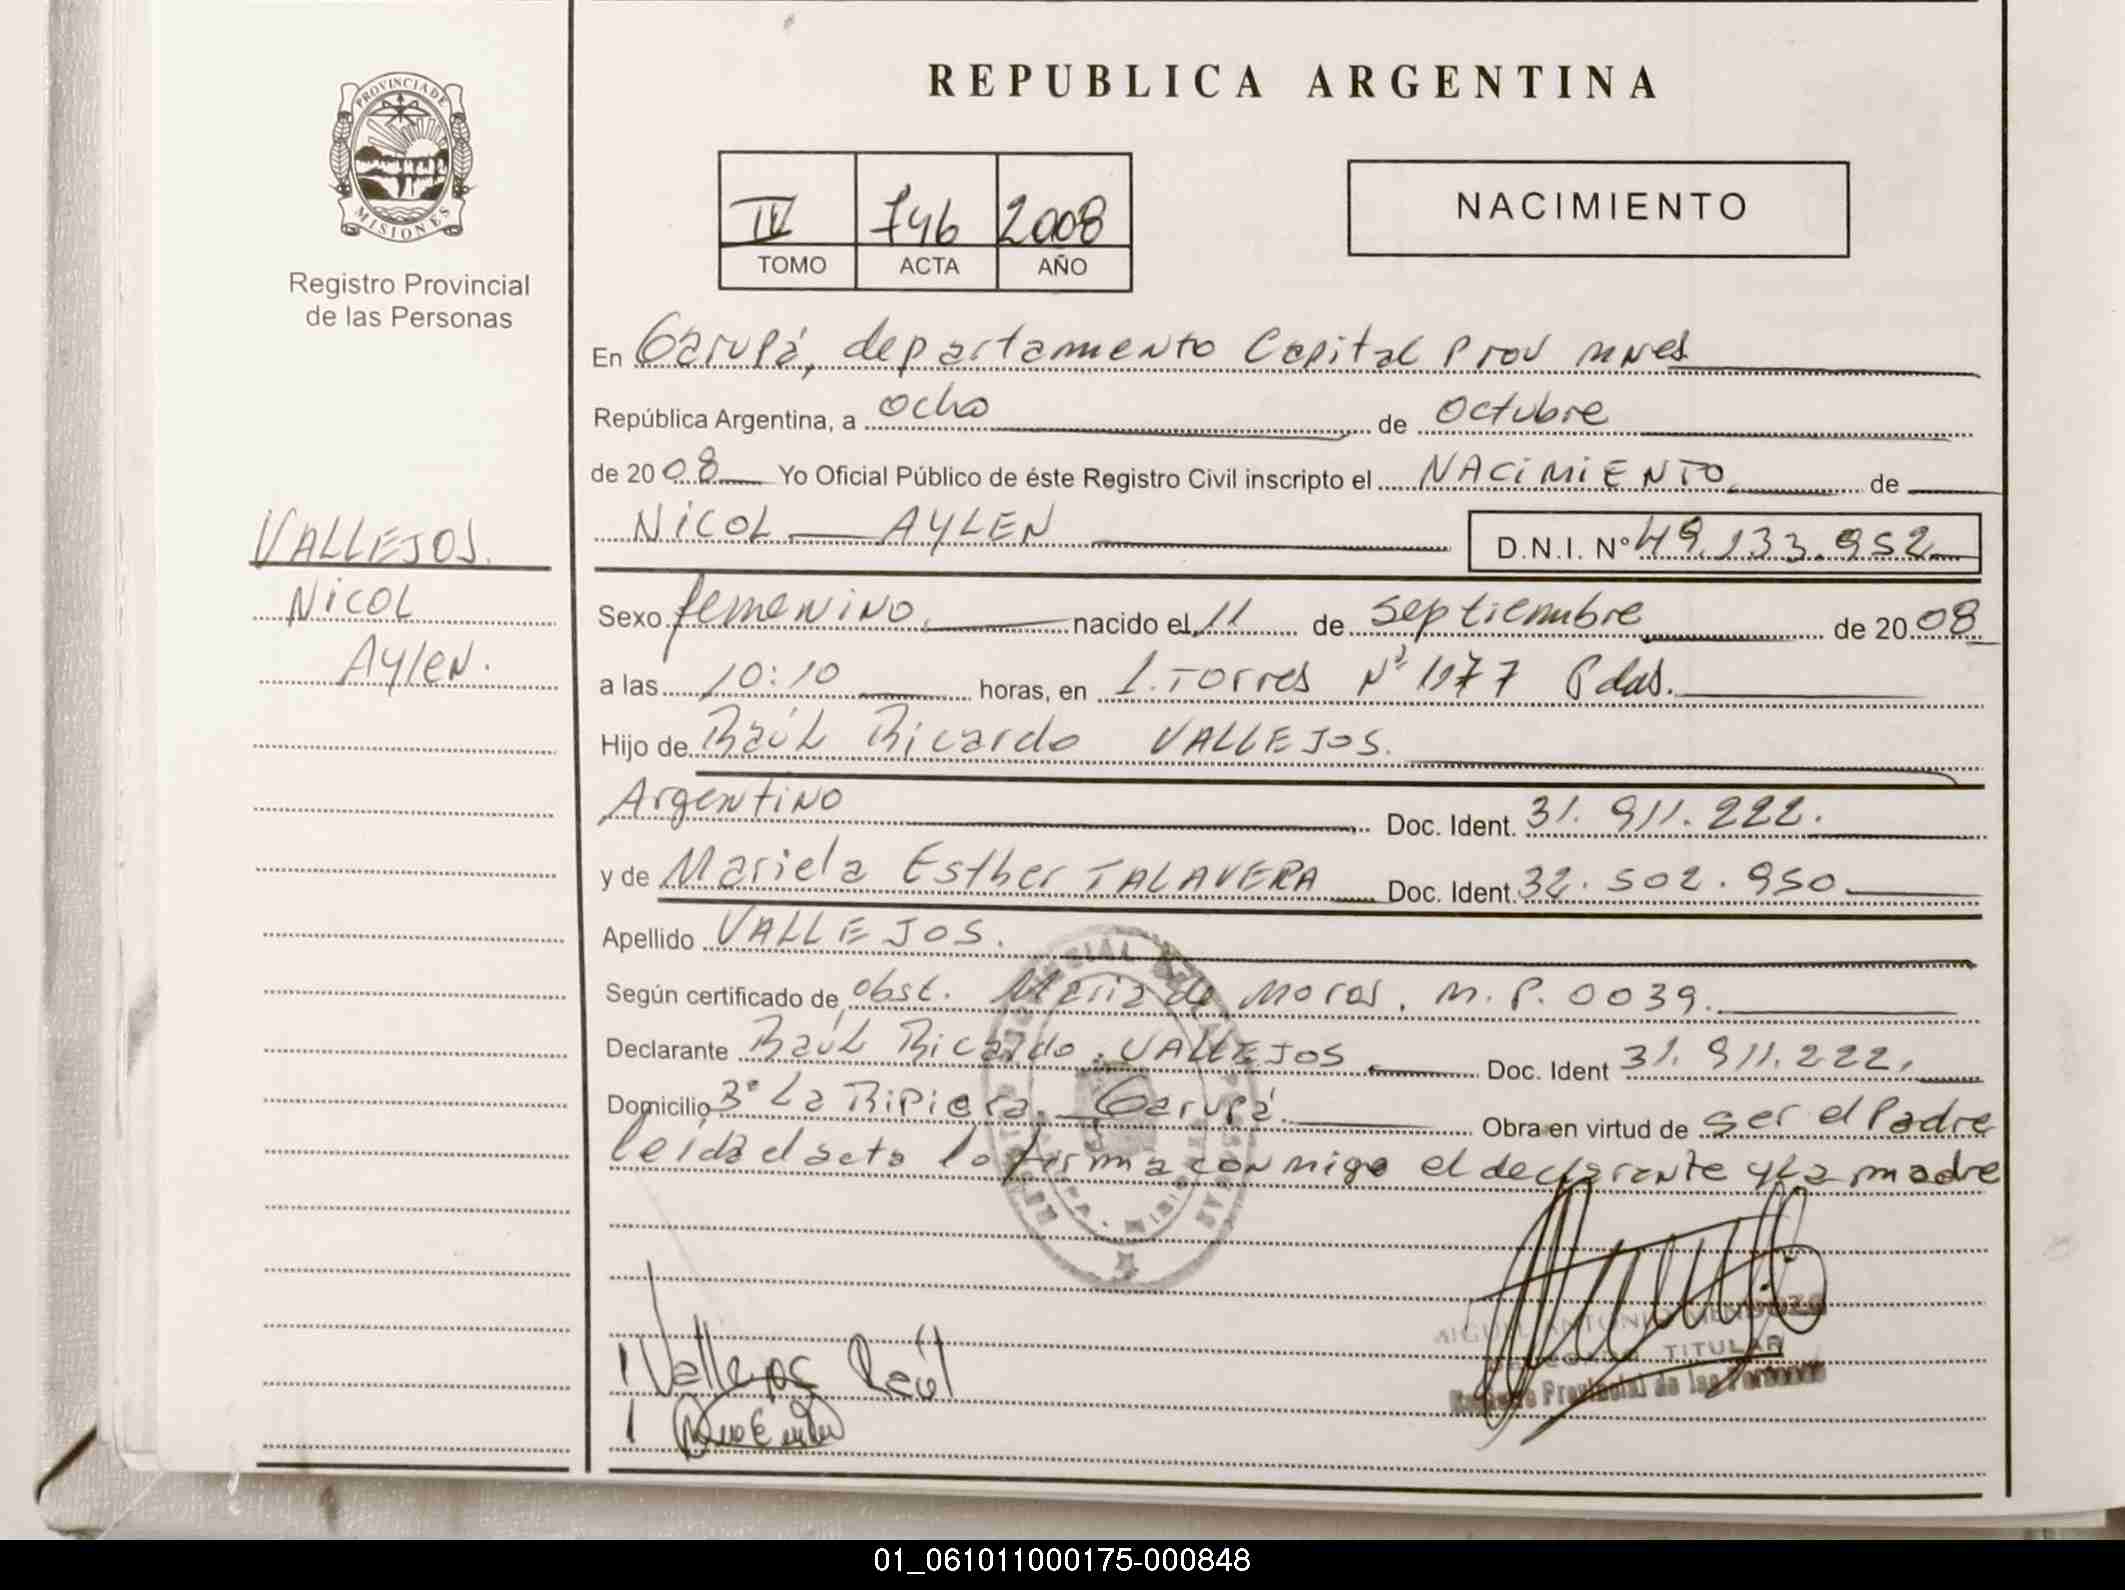 PROVINCIA DE
MISIONES
Registro Provincial
de las Personas
VALLEJOS.
Nicol
Aylen.
REPUBLICA ARGENTINA
IV 746 2008
TOMO ACTA AÑO
NACIMIENTO
En Garupá, departamento Capital Prov Mnes
República Argentina, a ocho de Octubre
de 2008 Yo Oficial Público de éste Registro Civil inscripto el NACIMIENTO de
NICOL AYLEN D.N.I. Nº 49.133.952
Sexo femenino nacido el 11 de septiembre de 2008
a las 10:10 horas, en L. Torres Nº 1977 Pdas.
Hijo de Raúl Ricardo VALLEJOS.
Argentino Doc. Ident. 31.911.222.
y de Mariela Esther TALAVERA Doc. Ident. 32.502.950
Apellido VALLEJOS.
Según certificado de obst. Maria de Moras. M.P. 0039.
Declarante Raúl Ricardo VALLEJOS Doc. Ident 31.911.222.
Domicilio 3º La Ripiera. Garupá. Obra en virtud de ser el Padre
leída el acta la firma conmigo el declarante y La madre
Vallejos Raúl
MIGUEL ANTONIO
TITULAR
Registro Provincial de las Personas
01_061011000175-000848